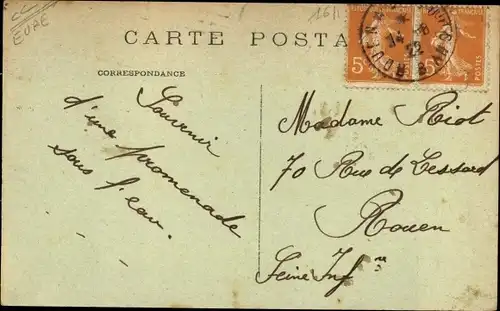 EURE
CARTE POSTA
CORRESPONDANCE
Souvenir
d'une promenade
sous l'eau.
5c
POSTES
14
22
Madame Riot
70 Rue de Lessard
Rouen
Seine Inf re